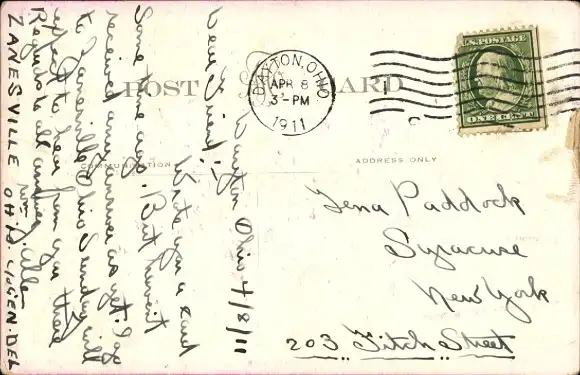 POST CARD
COMMUNICATION
ADDRESS ONLY
DAYTON, OHIO
APR 8
3-PM
1911
U.S. POSTAGE
ONE CENT
Dayton Ohio 4/8/11
Dear Friend:-
Wrote you a card
Some time ago. But haven't
received any answer as yet. I go
to Zanesville Ohio Sunday will
expect to hear from you there
Regards to all
from J. Allen
ZANESVILLE OH GEN. DEL
Lena Paddock
Syracuse
New York
203 Fitch Street